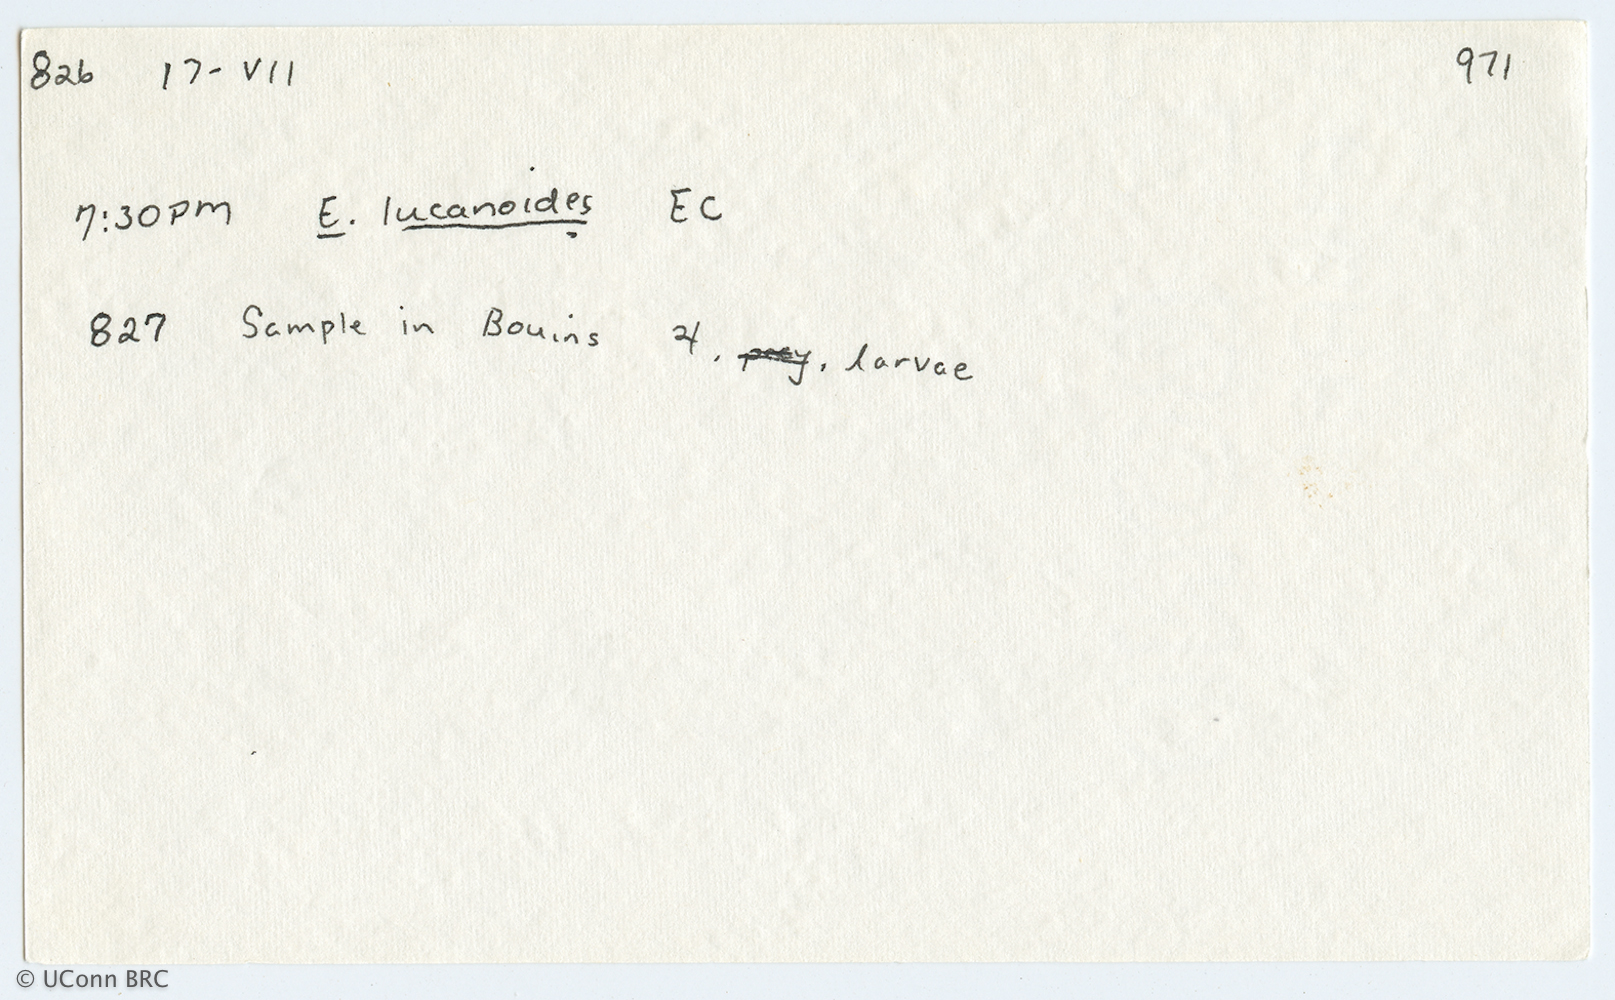 826 17-VII 971
7:30PM E. lucanoides EC
827 Sample in Bouins ♃, prey, larvae
© UConn BRC